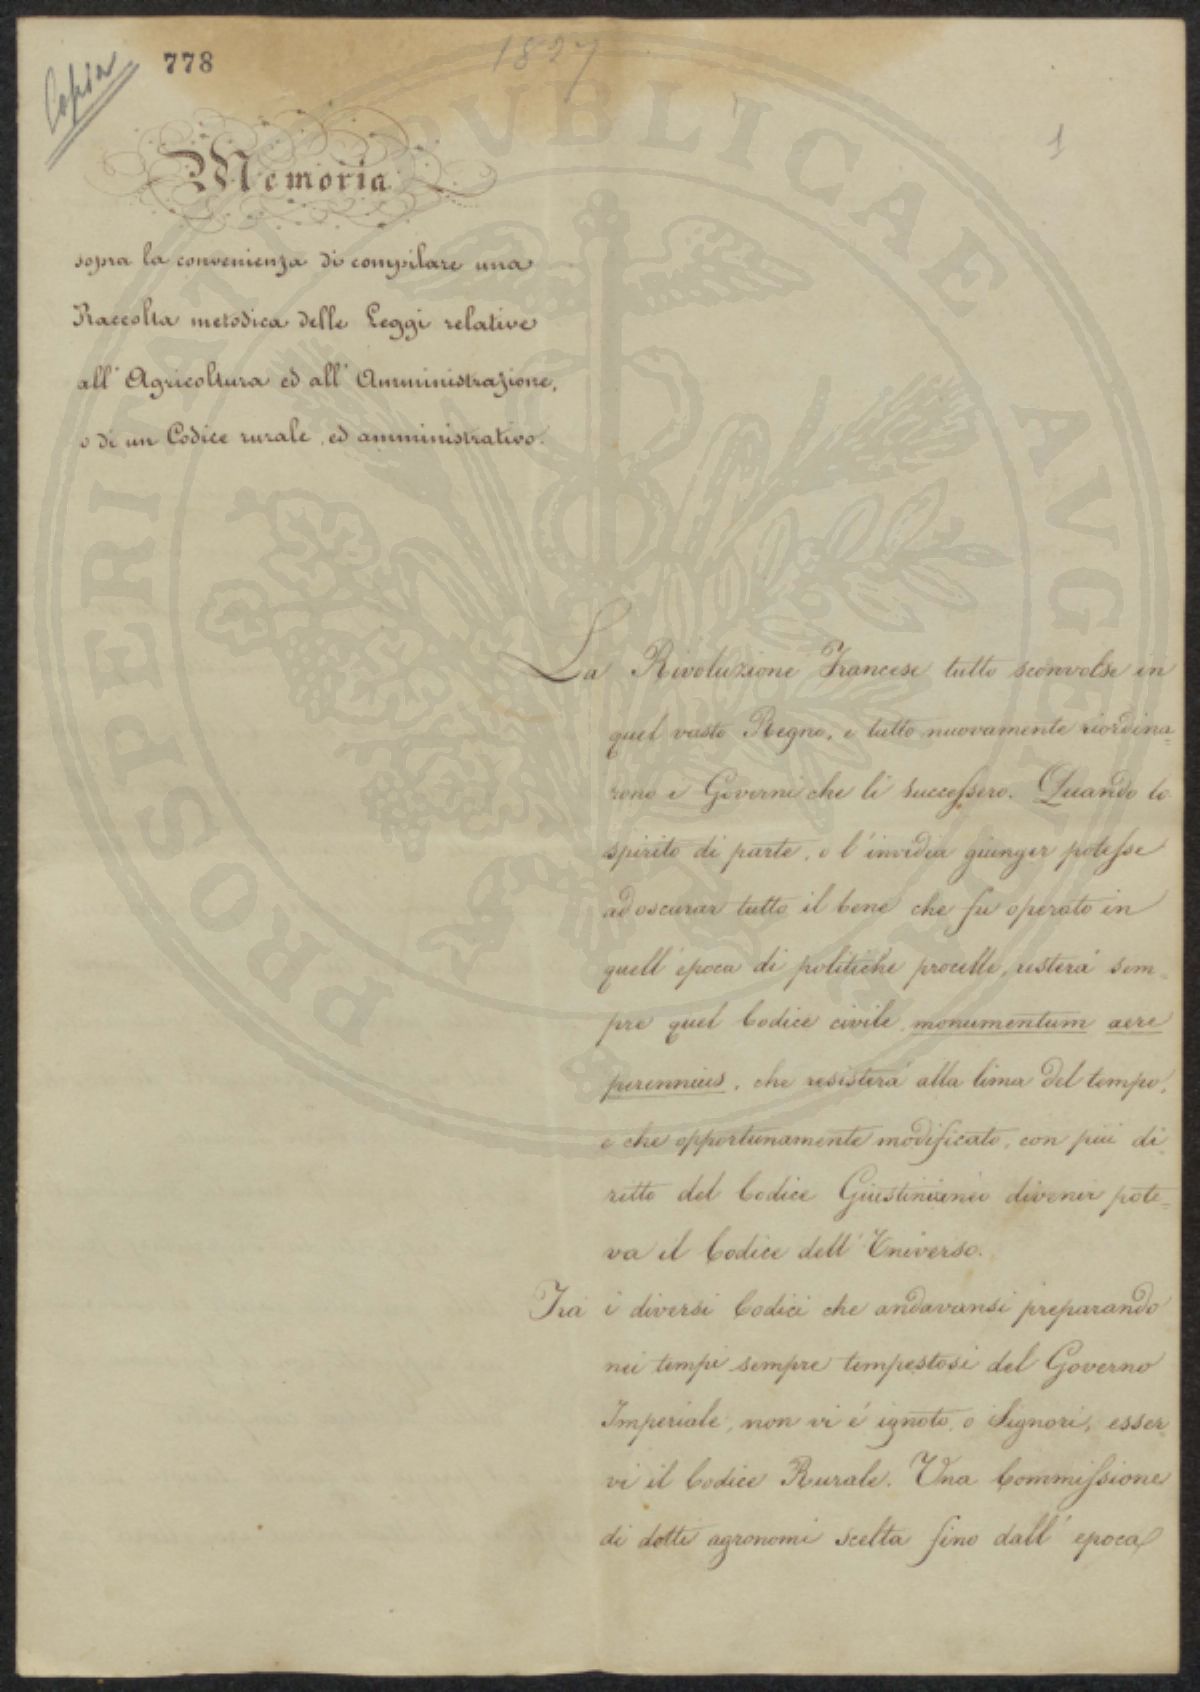 Copia
778
1827
1
Memoria
sopra la convenienza di compilare una
Raccolta metodica delle Leggi relative
all' Agricoltura ed all' Amministrazione,
o di un Codice rurale, ed amministrativo.
La Rivoluzione Francese tutto sconvolse in
quel vasto Regno, e tutto nuovamente riordina-
rono i Governi che li successero. Quando lo
spirito di parte, o l'invidia giunger potesse
ad oscurar tutto il bene che fu operato in
quell' epoca di politiche procelle, resterà sem-
pre quel Codice civile, monumentum aere
perennius, che resisterà alla lima del tempo,
e che opportunamente modificato, con più di
ritto del Codice Giustinianeo divenir pote-
va il Codice dell' Universo.
Tra i diversi Codici che andavansi preparando
nei tempi sempre tempestosi del Governo
Imperiale, non vi è ignoto, o Signori, esser
vi il Codice Rurale. Una Commissione
di dotti agronomi scelta fino dall' epoca
PROSPERITATI PVBLICAE AVGENDAE